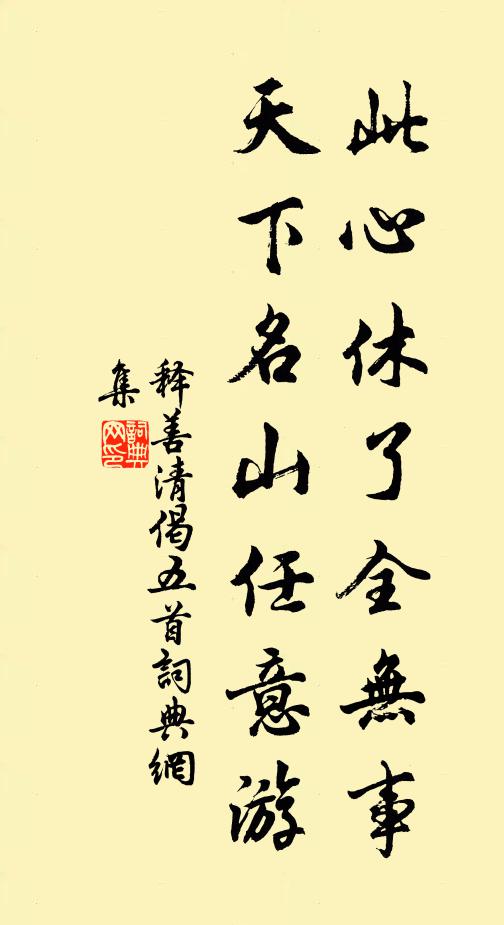 此心休了全無事
天下名山任意游
释善清偈五首詞典網
集
詞典
网印